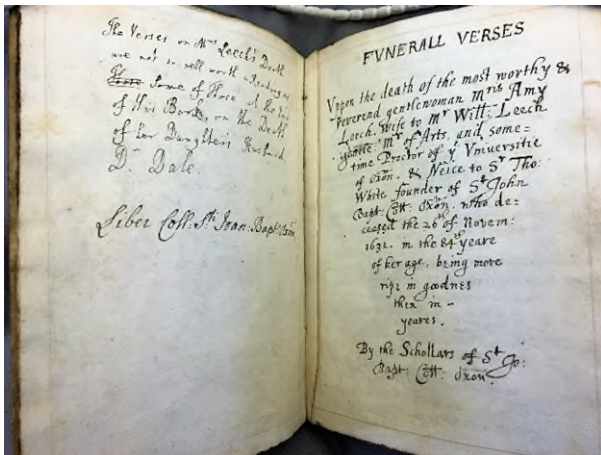 The Verses on Mrs Leech's Death
are not so well worth Reading as
Those Some of Those At the End
of This Book, on the Death
of her Daughter's Husband
Dr Dale.
Liber Coll: Sti Joan: Bapt: Oxon
FVNERALL VERSES
Vpon the death of the most worthy &
reverend gentlewoman Mris Amy
Leech, wife to Mr Will: Leech
gentle: Mr of Arts, and some=
time Proctor of ye Vniversitie
of Oxon. & Neice to Sr Tho:
White founder of St John
Bapt: Coll: Oxon. who de=
ceased the 26th of Novem:
1631. in the 84th yeare
of her age, being more
ripe in goodnes
then in
yeares.
By the Schollars of St Jo:
Bapt: Coll: Oxon.